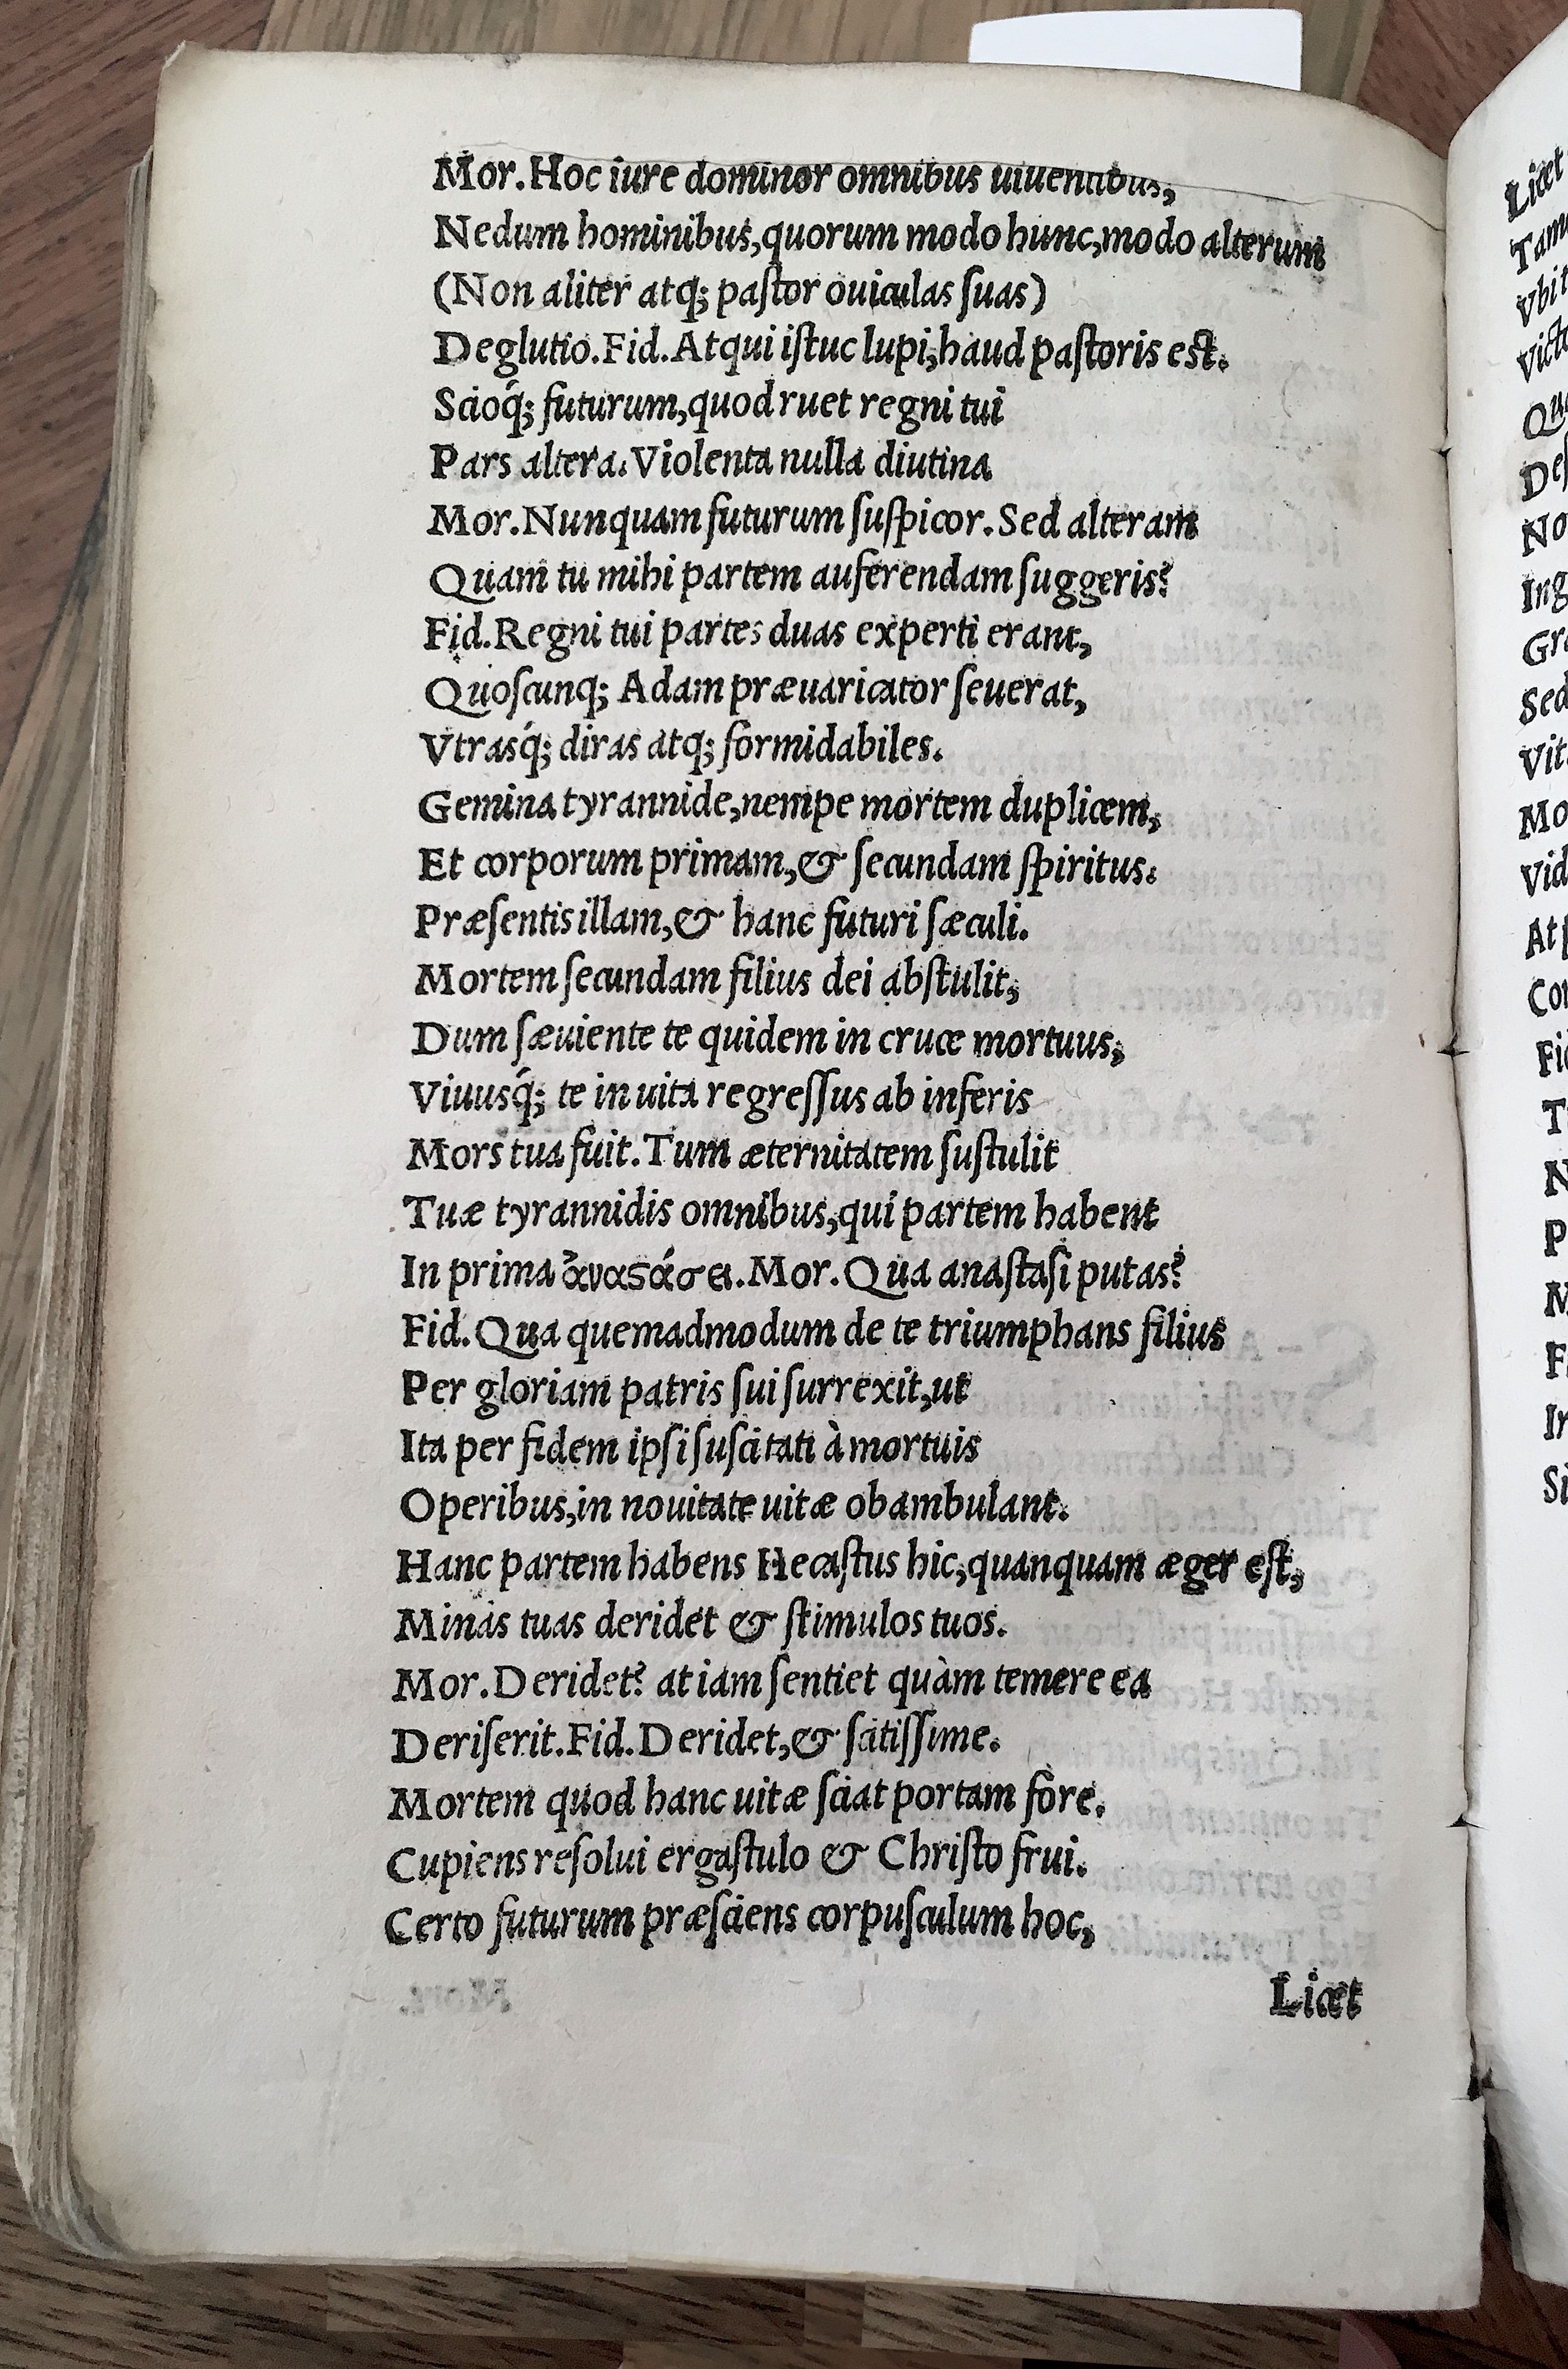 Mor. Hoc iure dominor omnibus uiuentibus,
Nedum hominibus, quorum modo hunc, modo alterum
(Non aliter atq; paſtor ouiculas ſuas)
Deglutio. Fid. Atqui iſtuc lupi, haud paſtoris eſt.
Scioq́; futurum, quod ruet regni tui
Pars altera. Violenta nulla diutina
Mor. Nunquam futurum ſuſpicor. Sed alteram
Quam tu mihi partem auferendam ſuggeris?
Fid. Regni tui partes duas experti erant,
Quoſcunq; Adam præuaricator ſeuerat,
Vtrasq́; diras atq; formidabiles.
Gemina tyrannide, nempe mortem duplicem,
Et corporum primam, & ſecundam ſpiritus.
Præſentis illam, & hanc futuri ſæculi.
Mortem ſecundam filius dei abſtulit,
Dum ſæuiente te quidem in cruce mortuus,
Viuusq́; te in uita regreſſus ab inferis
Mors tua fuit. Tum æternitatem ſuſtulit
Tuæ tyrannidis omnibus, qui partem habent
In prima ἀναϛάσει. Mor. Qua anaſtaſi putas?
Fid. Qua quemadmodum de te triumphans filius
Per gloriam patris ſui ſurrexit, ut
Ita per fidem ipſi ſuſcitati à mortuis
Operibus, in nouitate uitæ obambulant.
Hanc partem habens Hecaſtus hic, quanquam æger eſt,
Minas tuas deridet & ſtimulos tuos.
Mor. Deridet? at iam ſentiet quàm temere ea
Deriſerit. Fid. Deridet, & ſcitiſſime.
Mortem quod hanc uitæ ſciat portam fore.
Cupiens reſolui ergaſtulo & Chriſto frui.
Certo futurum præſciens corpuſculum hoc,
Licet
Licet
Vbi
No
Sed
Mo